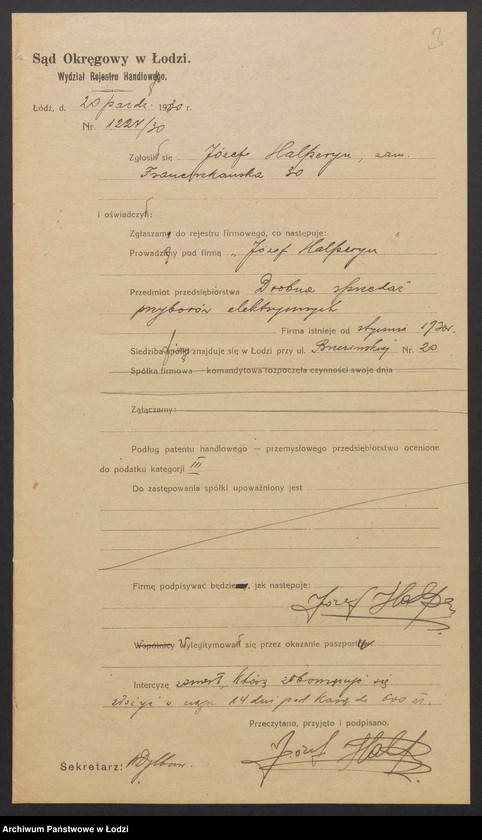 3
Sąd Okręgowy w Łodzi.
Wydział Rejestru Handlowego.
Łódź, d. 20 paźdz. 1930 r.
Nr. 1221/30
Zgłosił się Józef Halperyn, zam.
Franciszkańska 30
i oświadczył:
Zgłaszam do rejestru firmowego, co następuje:
Prowadzę pod firmą „Józef Halperyn"
Przedmiot przedsiębiorstwa Drobna sprzedaż
przyborów elektrycznych
Firma istnieje od stycznia 1930 r.
Siedziba firmy znajduje się w Łodzi przy ul. Brzezińskiej Nr. 20
Spółka firmowa — komandytowa rozpoczęła czynności swoje dnia
Załączamy:
Podług patentu handlowego — przemysłowego przedsiębiorstwo ocenione
do podatku kategorji III
Do zastępowania spółki upoważniony jest
Firmę podpisywać będzie, jak następuje:
Józef Halpe
Wspólnicy Wylegitymował się przez okazanie paszportu.
Intercyzę zawarł, którą zobowiązuje się
złożyć w ciągu 14 dni pod karą do 600 zł.
Przeczytano, przyjęto i podpisano.
Józef Halp
Sekretarz:
Archiwum Państwowe w Łodzi